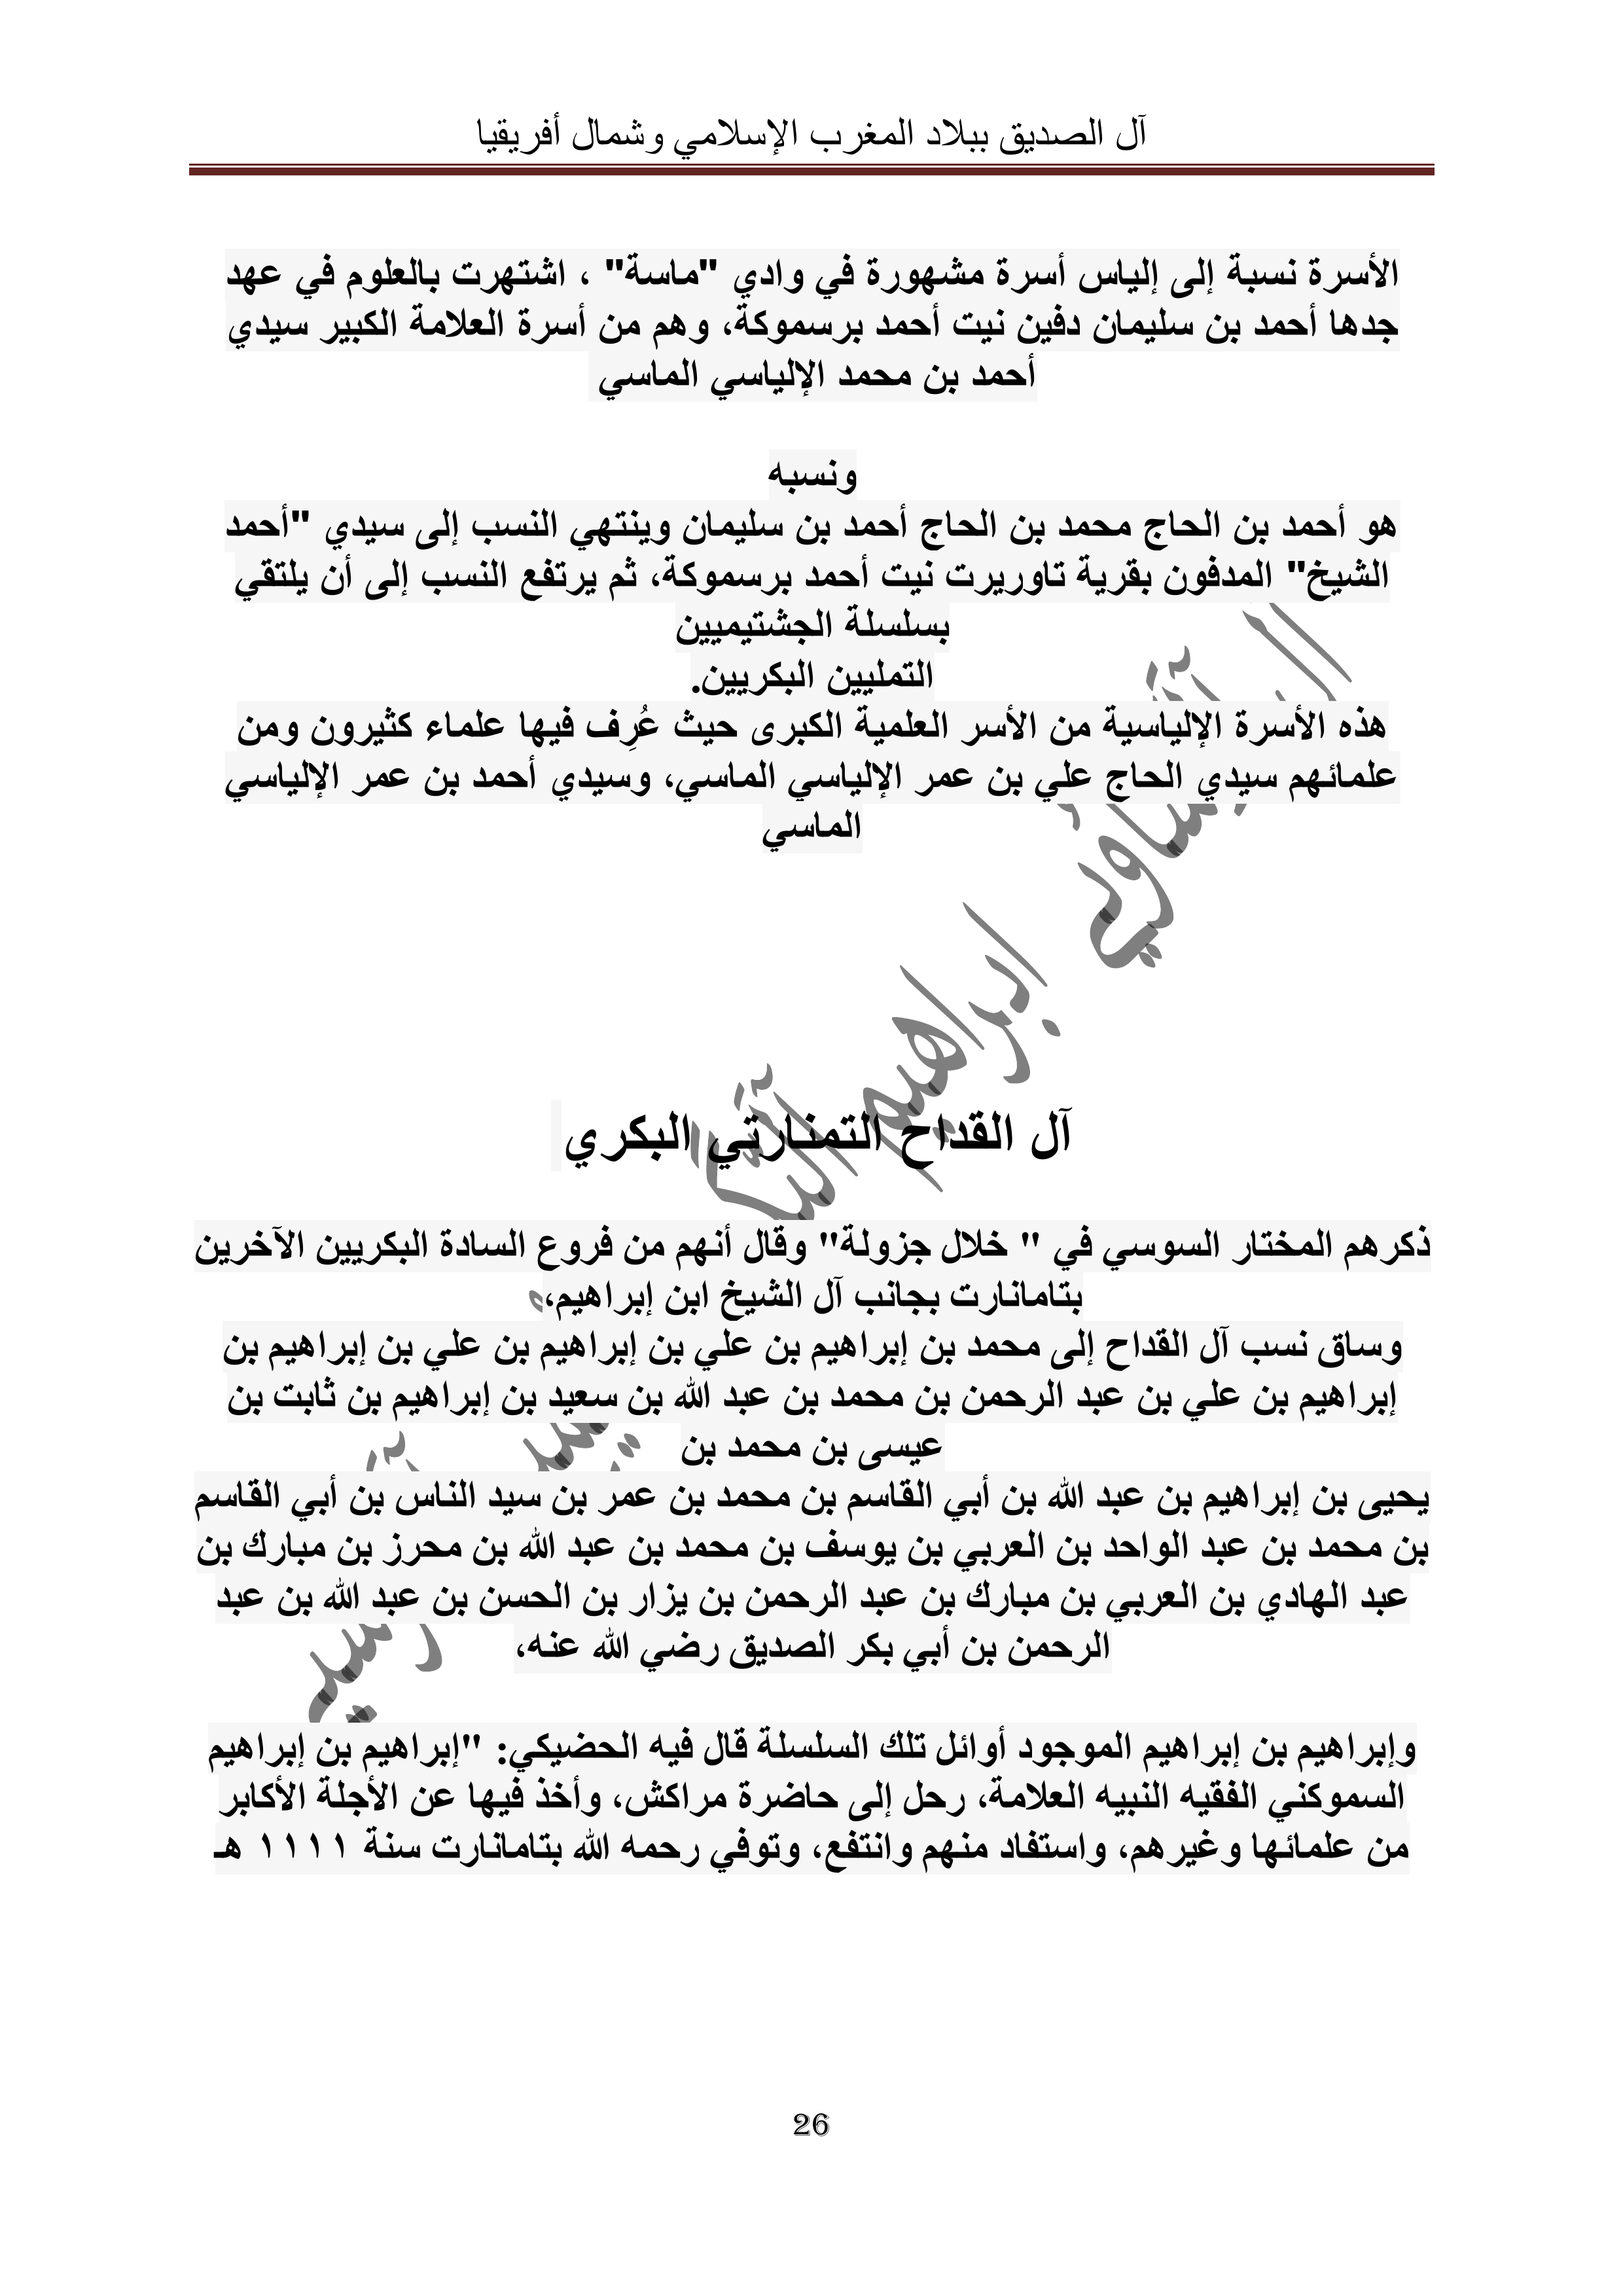 آل الصديق ببلاد المغرب الإسلامي وشمال أفريقيا
الأسرة نسبة إلى إلياس أسرة مشهورة في وادي "ماسة" ، اشتهرت بالعلوم في عهد
جدها أحمد بن سليمان دفين نيت أحمد برسموكة، وهم من أسرة العلامة الكبير سيدي
أحمد بن محمد الإلياسي الماسي
ونسبه
هو أحمد بن الحاج محمد بن الحاج أحمد بن سليمان وينتهي النسب إلى سيدي "أحمد
الشيخ" المدفون بقرية تاوريرت نيت أحمد برسموكة، ثم يرتفع النسب إلى أن يلتقي
بسلسلة الجشتيميين
التمليين البكريين.
هذه الأسرة الإلياسية من الأسر العلمية الكبرى حيث عُرِف فيها علماء كثيرون ومن
علمائهم سيدي الحاج علي بن عمر الإلياسي الماسي، وسيدي أحمد بن عمر الإلياسي
الماسي
آل القداح التمنارتي البكري
ذكرهم المختار السوسي في " خلال جزولة" وقال أنهم من فروع السادة البكريين الآخرين
بتامانارت بجانب آل الشيخ ابن إبراهيم،
وساق نسب آل القداح إلى محمد بن إبراهيم بن علي بن إبراهيم بن علي بن إبراهيم بن
إبراهيم بن علي بن عبد الرحمن بن محمد بن عبد الله بن سعيد بن إبراهيم بن ثابت بن
عيسى بن محمد بن
يحيى بن إبراهيم بن عبد الله بن أبي القاسم بن محمد بن عمر بن سيد الناس بن أبي القاسم
بن محمد بن عبد الواحد بن العربي بن يوسف بن محمد بن عبد الله بن محرز بن مبارك بن
عبد الهادي بن العربي بن مبارك بن عبد الرحمن بن يزار بن الحسن بن عبد الله بن عبد
الرحمن بن أبي بكر الصديق رضي الله عنه،
وإبراهيم بن إبراهيم الموجود أوائل تلك السلسلة قال فيه الحضيكي: "إبراهيم بن إبراهيم
السموكني الفقيه النبيه العلامة، رحل إلى حاضرة مراكش، وأخذ فيها عن الأجلة الأكابر
من علمائها وغيرهم، واستفاد منهم وانتفع، وتوفي رحمه الله بتامانارت سنة ١١١١ هـ
26